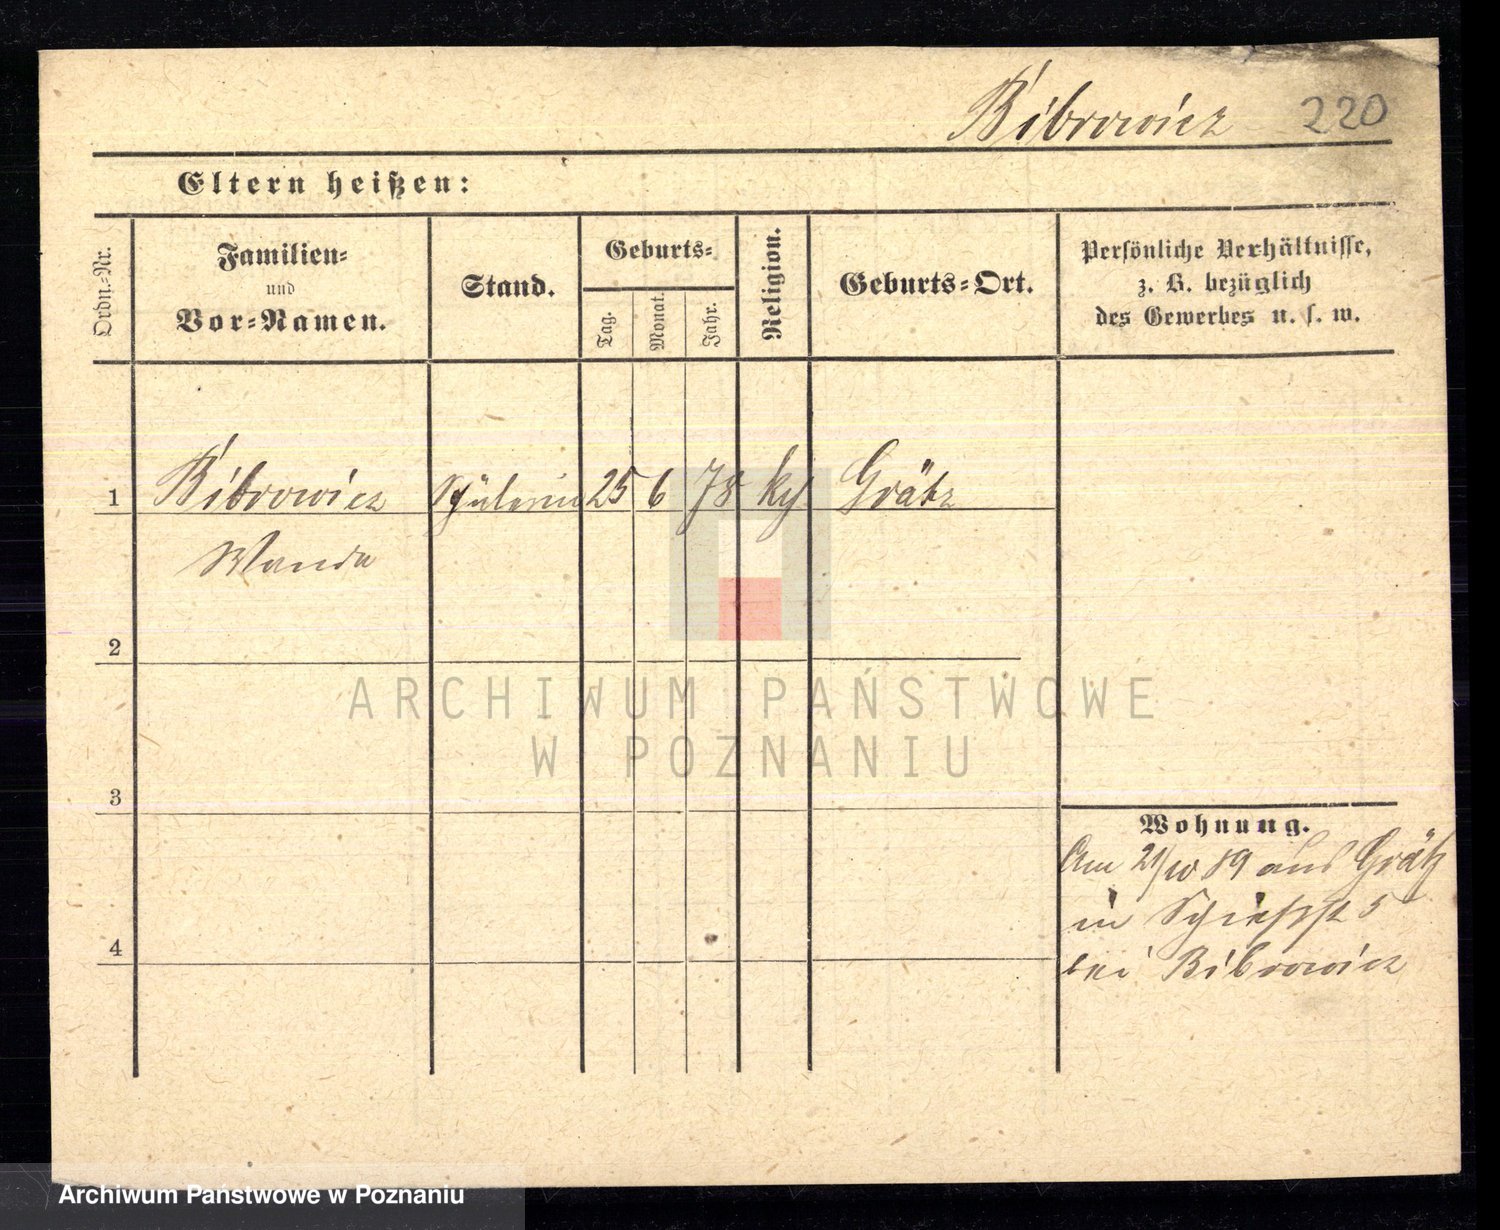 Bibrowicz 220
Eltern heißen:
Ordn.-Nr.
Familien-
und
Vor-Namen.
Stand.
Geburts-
Tag.
Monat.
Jahr.
Religion.
Geburts-Ort.
Persönliche Verhältnisse,
z. B. bezüglich
des Gewerbes u. s. w.
1 Bibrowicz Schülerin 25 6 78 Grätz
Wanda
2
3
4
Wohnung.
Am 21/10 89 aus Grätz
in 5
bei Bibrowicz
ARCHIWUM PAŃSTWOWE
W POZNANIU
Archiwum Państwowe w Poznaniu